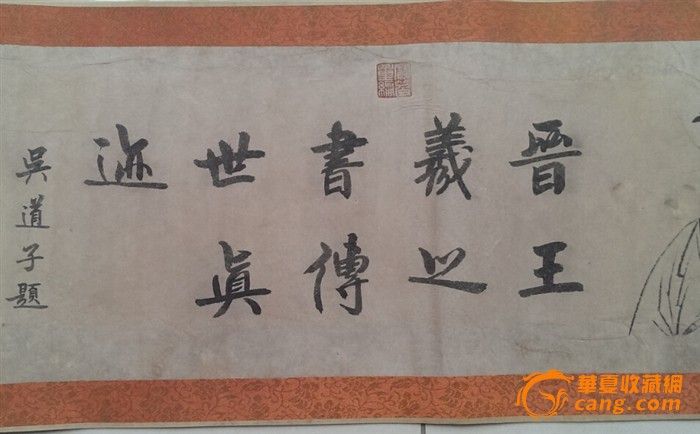 晋王
羲之
書傳
世眞
迹
吳道子題
華夏收藏網
cang.com